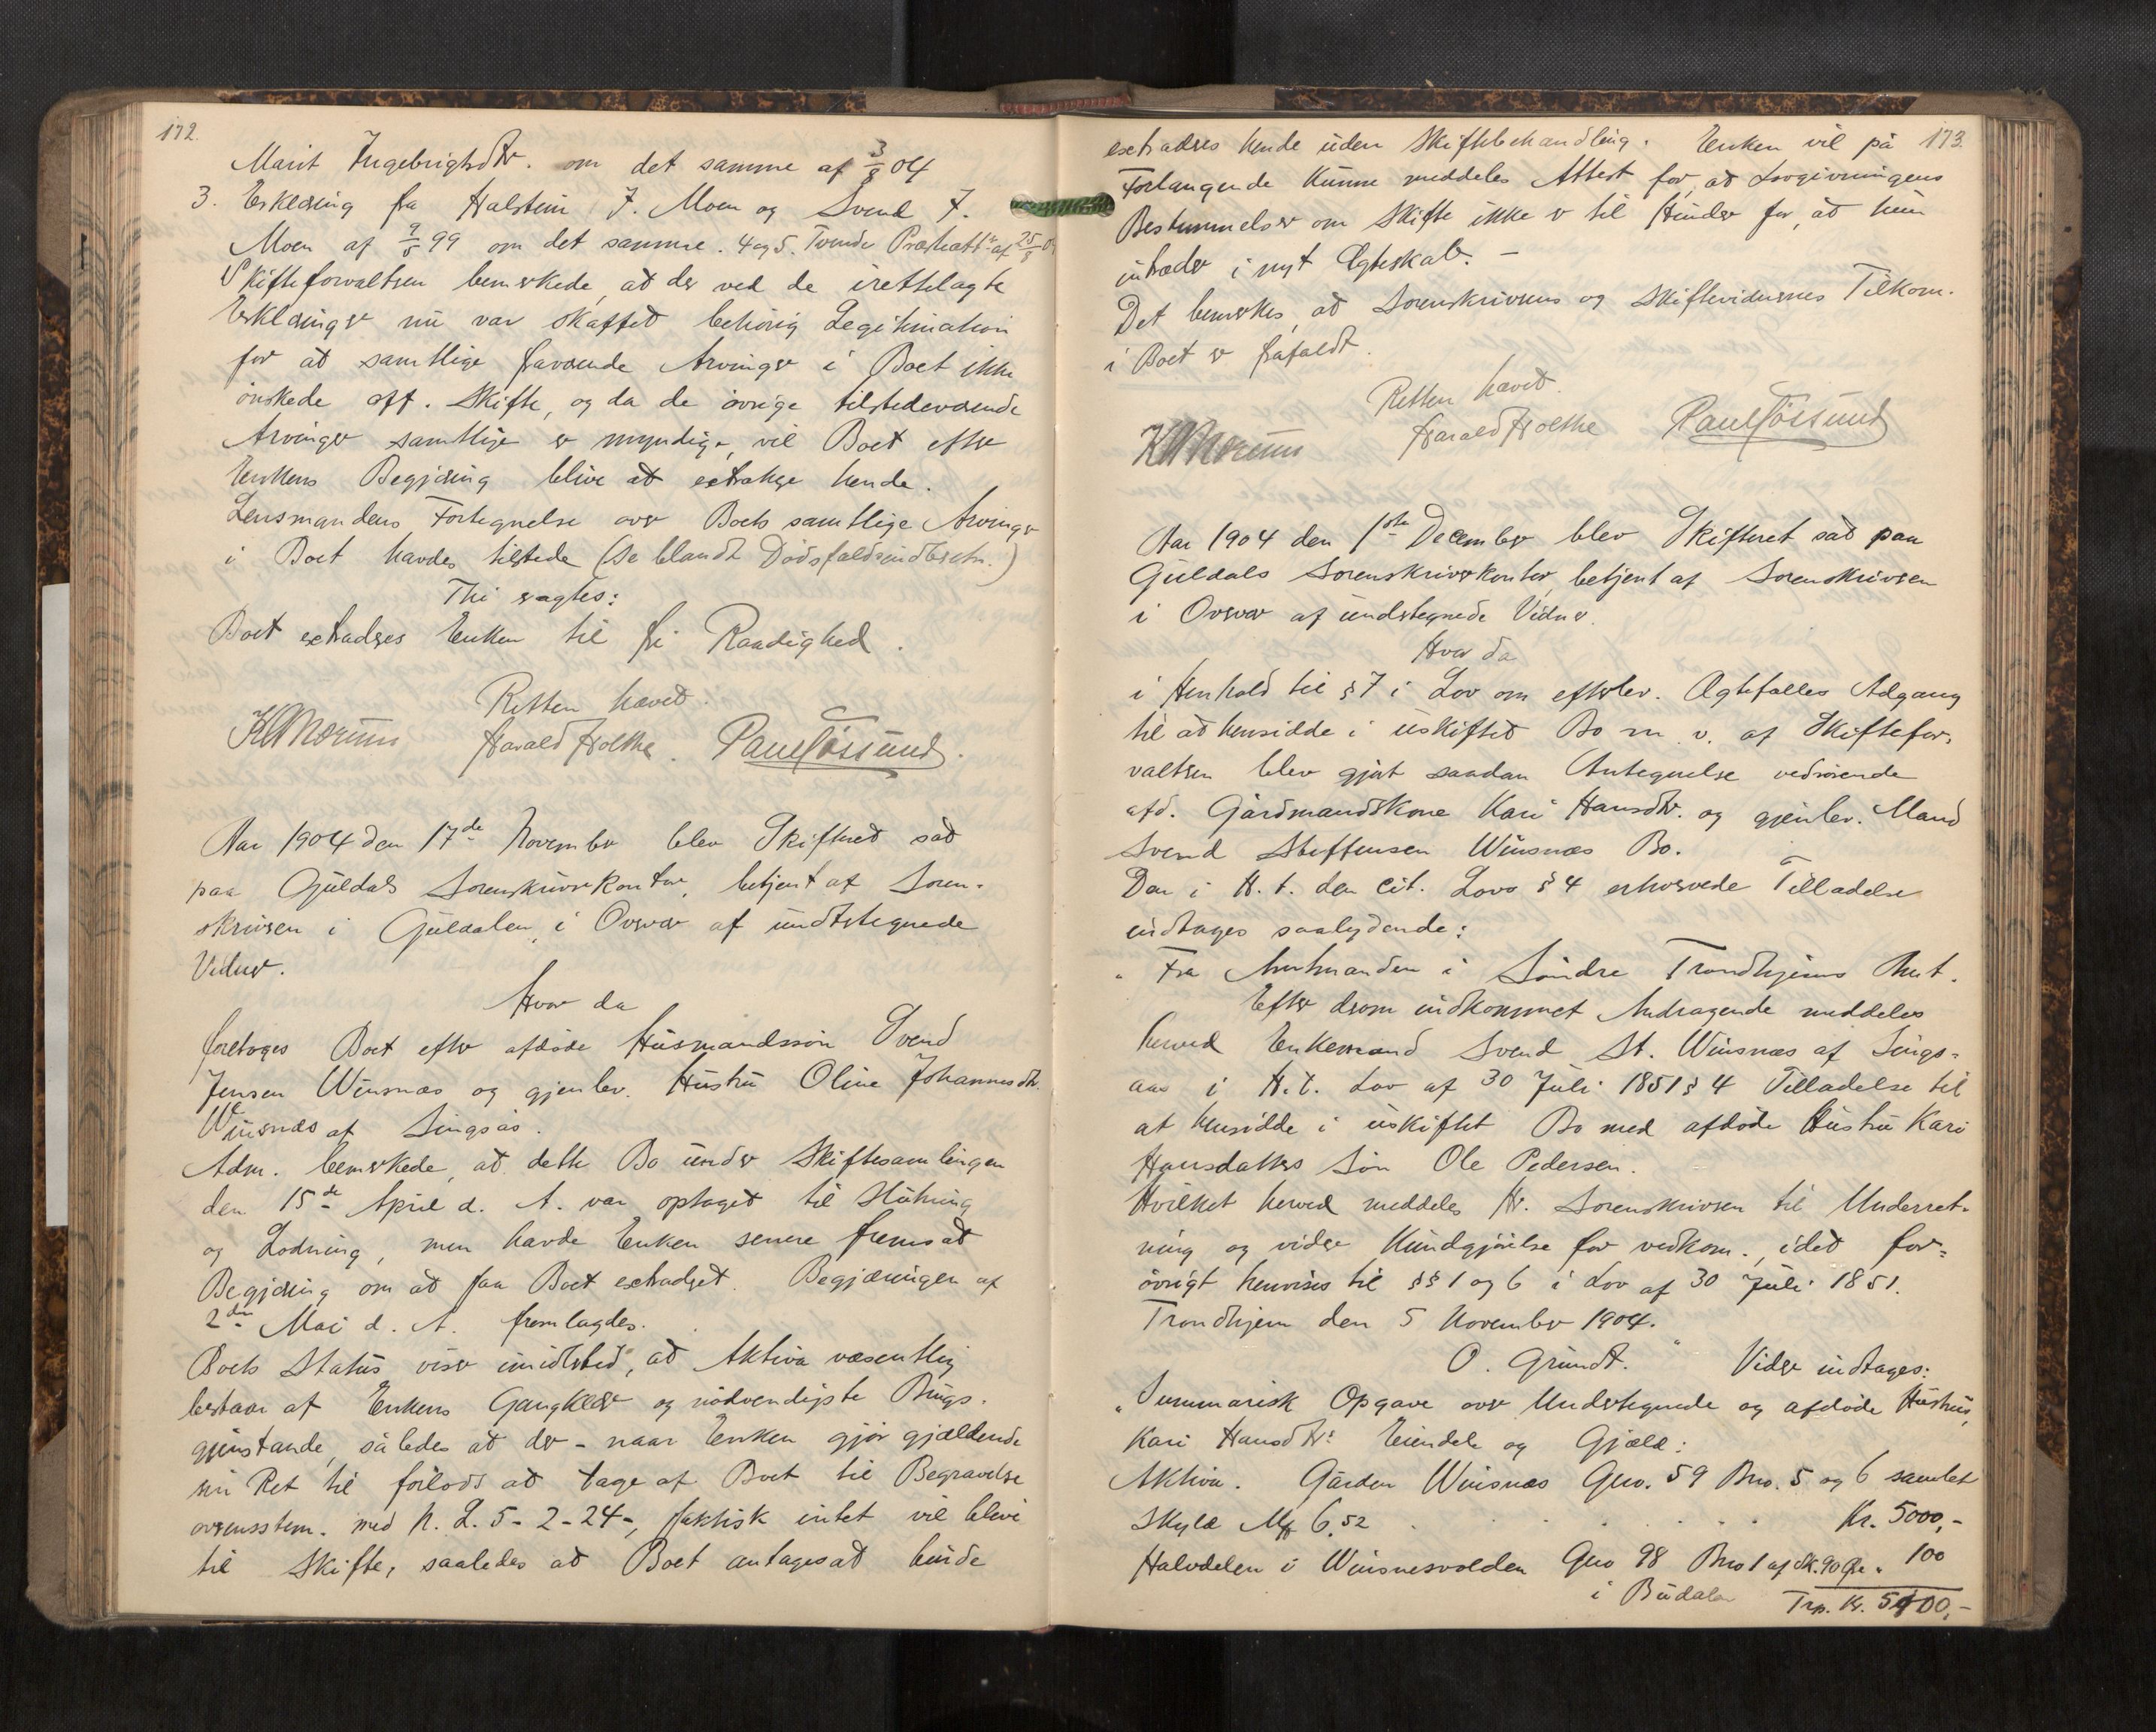 172.
Marit Ingebrigtsdtr. om det samme af 3/8 04
3. Erklæring fra Halstein J. Moen og Svend J.
Moen af 9/5 99 om det samme. 4 og 5. Tvende Præsteatt. af 25/8 0
Skifteforvalteren bemærkede, at der ved de irettelagte
Erklæringer nu var skaffet behörig Legitimation
for at samtlige fraværende Arvinger i Boet ikke
önskede off. Skifte, og da de övrige tilstedeværende
Arvinger samtlige er myndige, vil Boet efter
Enkens Begjæring blive at extradere hende.
Lensmandens Fortegnelse over Boets samtlige Arvinger
i Boet havdes tilstede (Se blandt Dödsfaldsindberetn.)
Thi eragtes:
Boet extraderes Enken til fri Raadighed.
Retten hævet.
Harald Holthe. Paul Fossund.
Aar 1904 den 17de November blev Skifteret sat
paa Guldals Sorenskriverkontor, betjent af Soren-
skriveren i Guldalen, i Overvær af undertegnede
Vidner.
Hvor da
foretoges Boet efter afdøde Husmandssön Svend
Jensen Winsnæs og gjenlev. Hustru Oline Johannesdtr.
Winsnæs af Singsås.
Adm. bemærkede, at dette Bo under Skiftesamlingen
den 15de April d. A. var optaget til Slutning
og Lodning, men havde Enken senere fremsat
Begjæring om at faa Boet extraderet. Begjæringen af
2den Mai d. A. fremlagdes.
Boets Status viser imidlertid, at Aktiva væsentlig
bestaar af Enkens Gangklær og nödvendigste Brugs-
gjenstande, således at der - naar Enken gjör gjældende
sin Ret til forlods at tage af Boet til Begravelse
overensstem. med N. L. 5-2-24-, faktisk intet vil blive
til Skifte, saaledes at Boet antages at burde
173.
extraderes hende uden Skiftebehandling. Enken vil på
Forlangende kunne meddeles Attest for, at Lovgivningens
Bestemmelser om Skifte ikke er til Hinder for, at hun
intræder i nyt Ægteskab. -
Det bemærkes, at Sorenskriverens og Skiftevidnernes Tilkom.
i Boet er frafaldt.
Retten hævet.
Harald Holthe Paul Fossund
Aar 1904 den 1ste December blev Skifteret sat paa
Guldals Sorenskriverkontor, betjent af Sorenskriveren
i Overvær af undertegnede Vidner.
Hvor da
i Henhold til § 7 i Lov om efterlev. Ægtefælles Adgang
til at hensidde i uskiftet Bo m. v. af Skiftefor-
valteren blev gjort saadan Antegnelse vedrörende
afd. Gårdmandskone Kari Hansdtr. og gjenlev. Mand
Svend Steffensen Winsnæs Bo.
Den i H. t. den cit. Lovs § 4 erhvervede Tilladelse
indtages saalydende:
" Fra Amtmanden i Söndre Trondhjems Amt.
Efter derom indkommet Andragende meddeles
herved Enkemand Svend St. Winsnæs af Sings-
aas i H. t. Lov af 30 Juli 1851 § 4 Tilladelse til
at hensidde i uskiftet Bo med afdøde Hustru Kari
Hansdatters Sön Ole Pedersen.
Hvilket herved meddeles Hr. Sorenskriveren til Underret-
ning og videre Kundgjörelse for vedkom., idet for-
övrigt henvises til §§ 1 og 6 i Lov af 30 Juli 1851.
Trondhjem den 5 November 1904.
O. Grundt. " Videre indtages:
"Summarisk Opgave over Undertegnede og afdöde Hustru,
Kari Hansdtrs Eiendele og Gjæld:
Aktiva. Gården Winsnæs Gno. 59 Bno. 5 og 6 samlet
Skyld Mk 6,52 . . . . . . Kr. 5000,-
Halvdelen i Winsnesvolden Gno 98 Bno 1 af Sk. 90 Øre " 100
i Budalen Trp. Kr. 5100,-